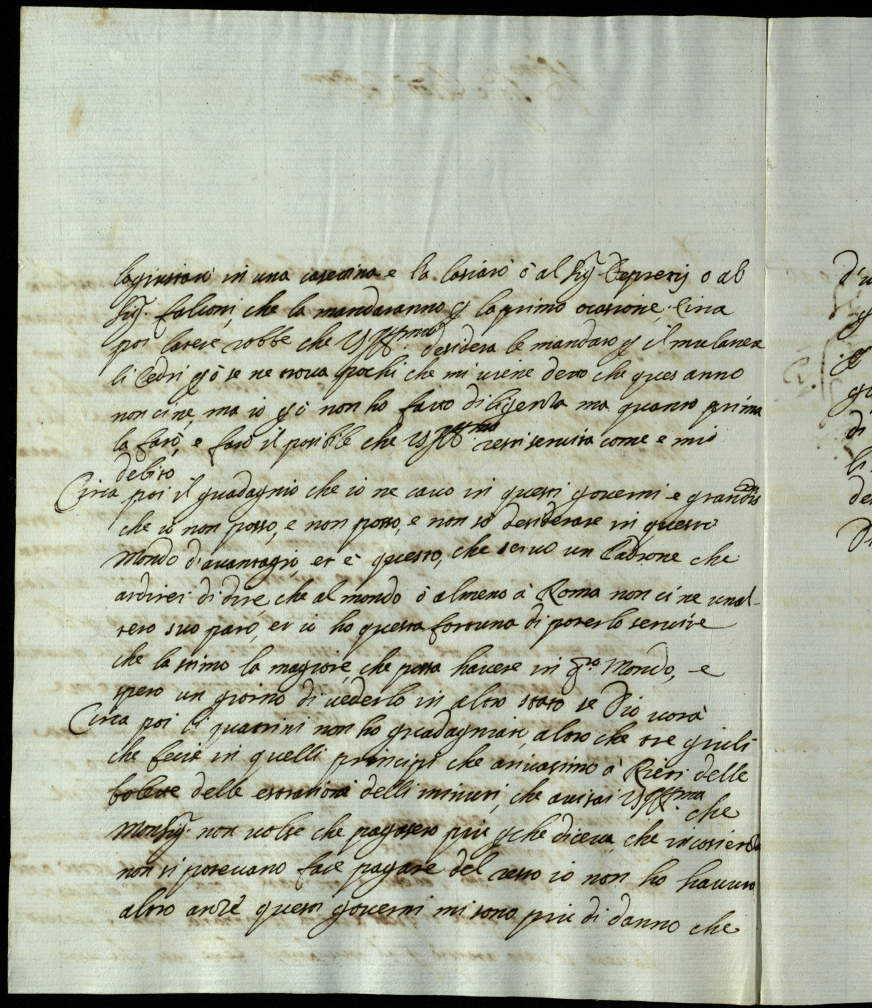 lagiustarò in una casettina e la lasciarò ò al Sig.r Depretis o al
Sig.r falconi, che la mandaranno p la prima ocasione, Circa
poi larere robbe che VS Ill.ma desidera le mandarò p il mulanera
li Cedri p ò se ne trova pochi che mi viene detto che ques anno
non ci ne, ma io p ò non ho fatto diligenza ma quanto prima
la farò, e farò il posibile che VS Ill.ma resti servita come e mio
debito
Circa poi il guadagnio che io ne cavo in questi governi e grande
che io non posso, e non posso, e non sò desiderare in questo
Mondo d'avantagio, et è questo, che servo un Padrone che
ardirei di dire che al mondo ò almeno à Roma non ci ne unal-
tero suo paro, et io ho questa fortuna di poterlo servire
che la stimo la magiore, che possa havere in q.sto Mondo, e
spero un giorno di vederlo in altro stato se Dio vorà
Circa poi li quatrini non ho guadagniati, altro che tre giuli
che feci in quelli principi che arivassimo à Rieti delle
bolette delle estrationi delli minuti, che avisai VS Ill.ma che
Monsig.r non volse che pagassero più p che diceva, che in cosienza
non si potevano fare pagare del resto io non ho havuto
altro anzi questi governi mi sono più di danno che